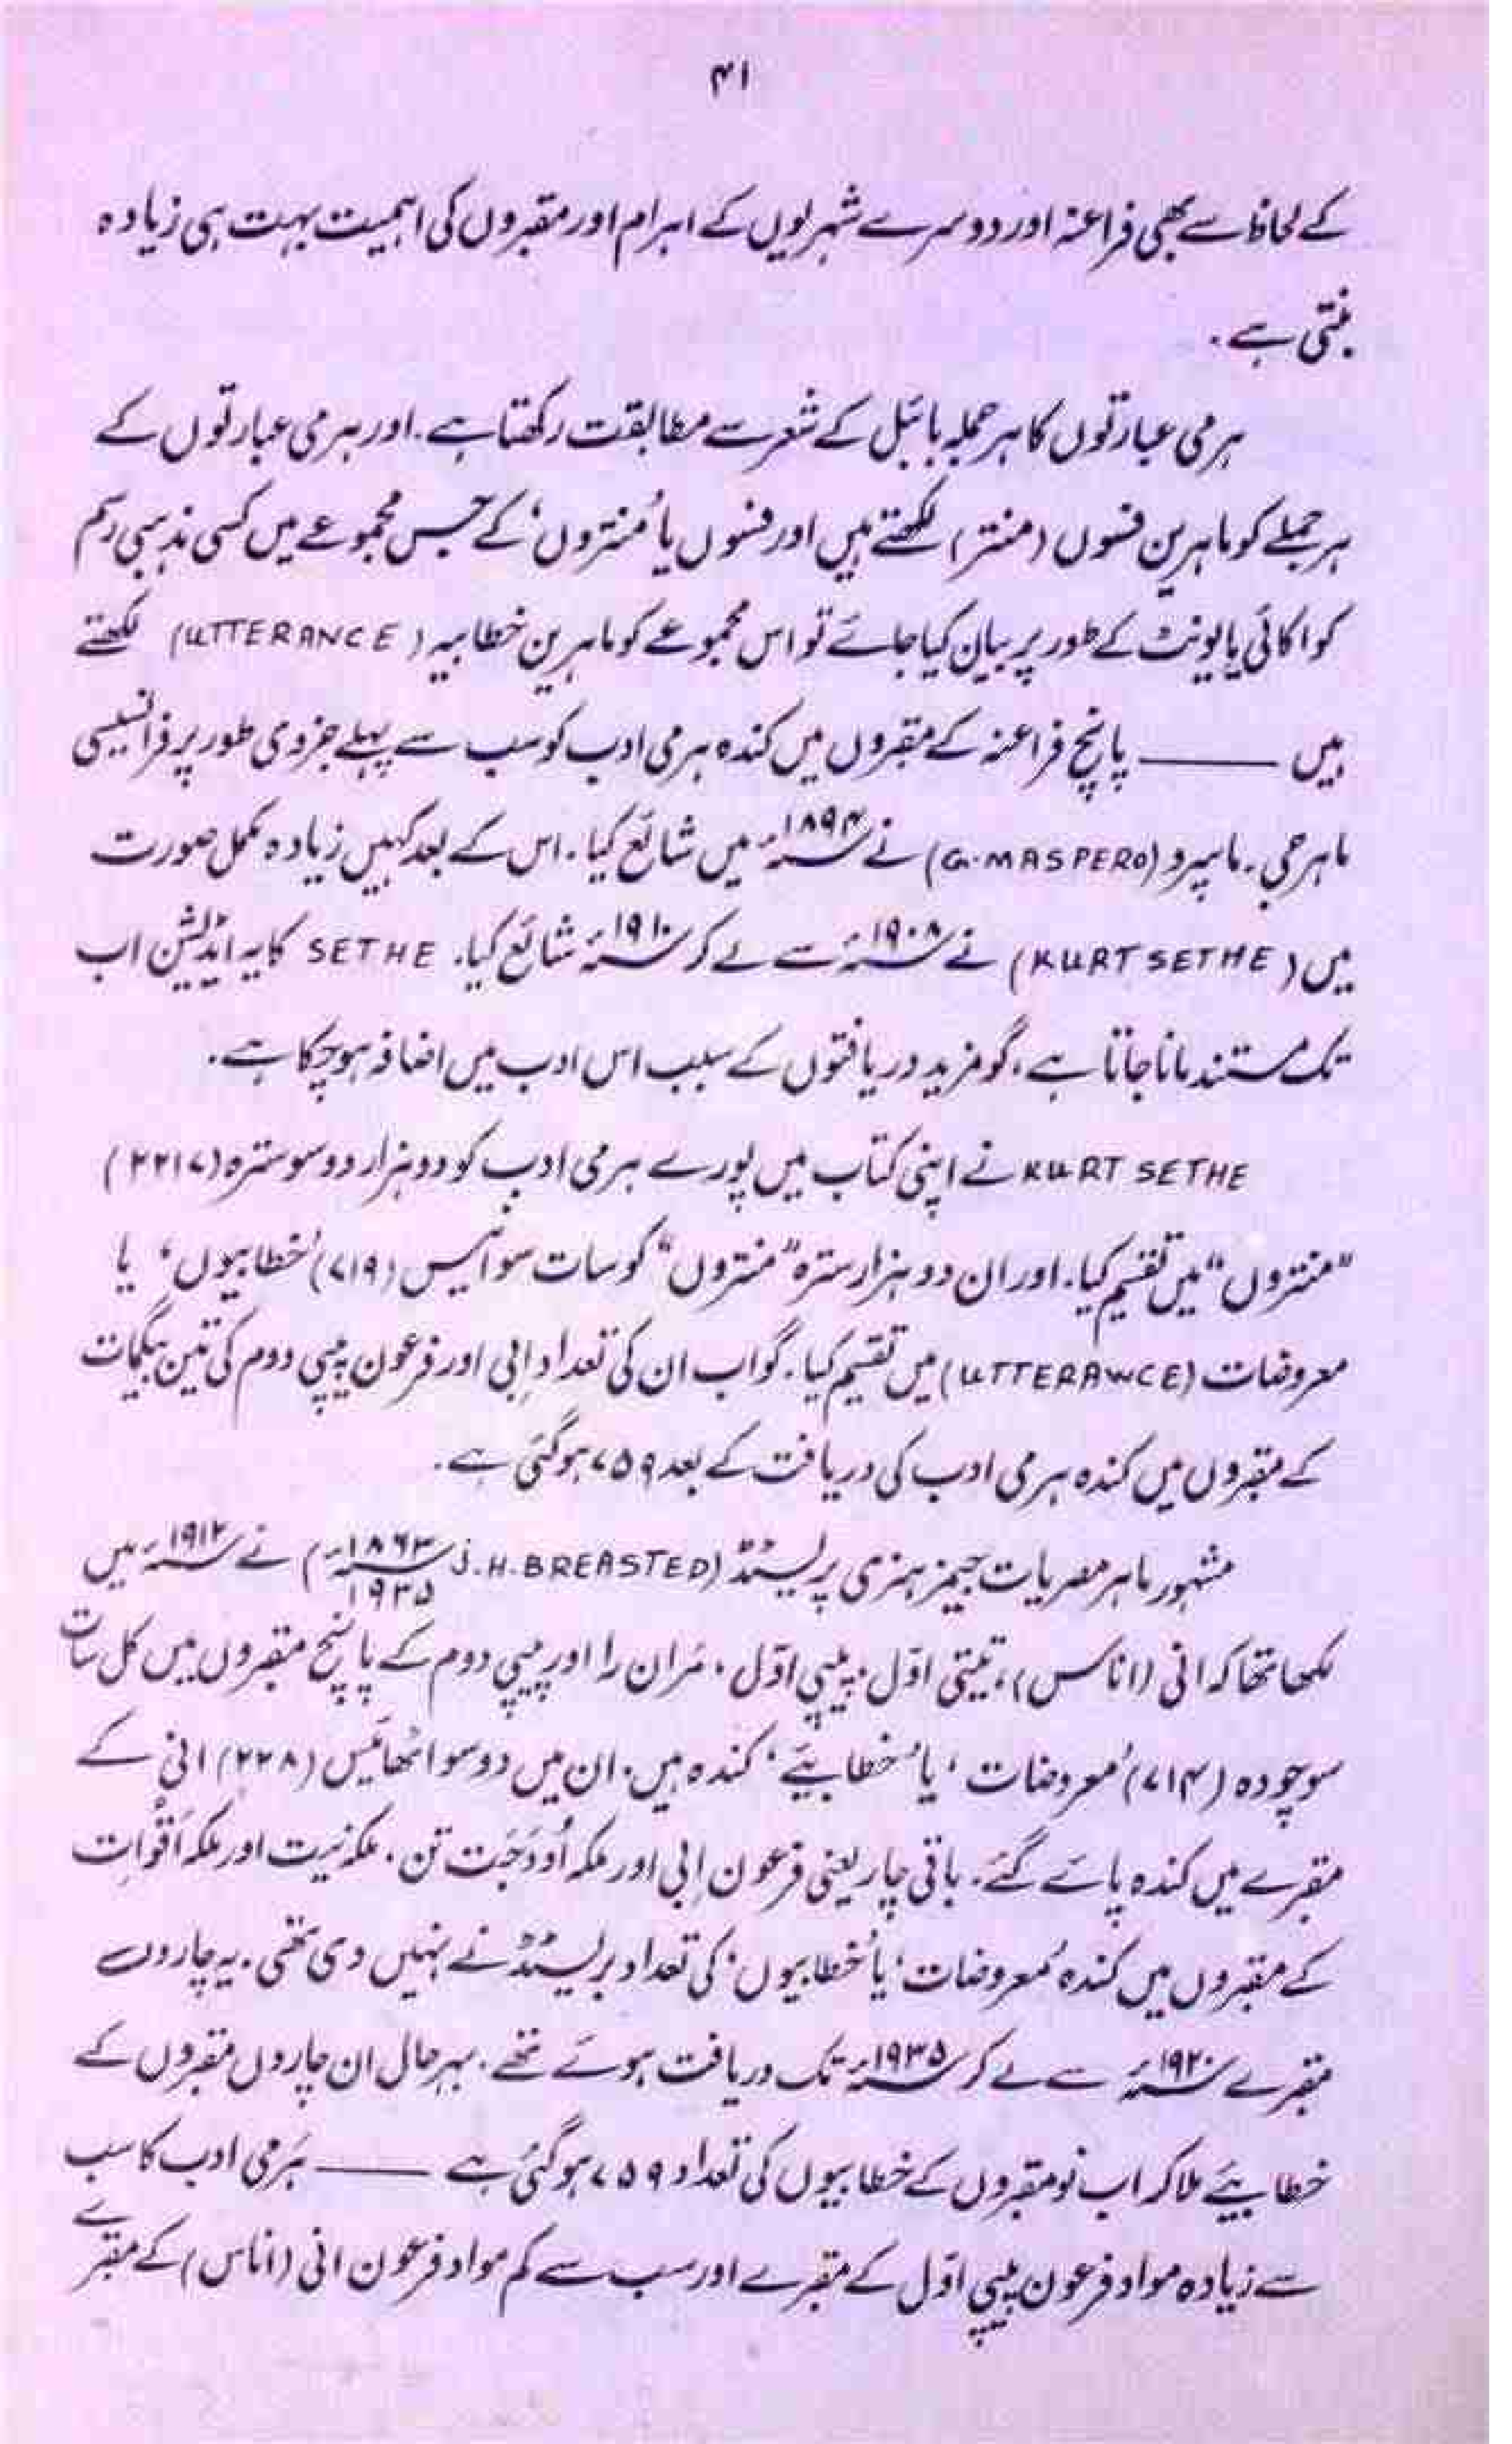 ۴۱
کے لحاظ سے بھی فراعنہ اور دوسرے شہریوں کے اہرام اور مقبروں کی اہمیت بہت ہی زیادہ
بنتی ہے۔
ہرمی عبارتوں کا ہر جملہ بائبل کے شعر سے مطابقت رکھتا ہے۔ اور ہرمی عبارتوں کے
ہر جملے کو ماہرین فسوں (منتر) لکھتے ہیں اور فسوں یا ’منتروں‘ کے جس مجموعے میں کسی مذہبی رسم
کو اکائی یا یونٹ کے طور پر بیان کیا جائے تو اس مجموعے کو ماہرین خطابیہ (UTTERANCE) لکھتے
ہیں ——— پانچ فراعنہ کے مقبروں میں کندہ ہرمی ادب کو سب سے پہلے جزوی طور پر فرانسیسی
ماہر جی۔ ماسپرو (G.MASPERO) نے ۱۸۹۴ء میں شائع کیا۔ اس کے بعد کہیں زیادہ مکمل صورت
میں (KURT SETHE) نے ۱۹۰۸ء سے لے کر ۱۹۱۰ء شائع کیا۔ SETHE کا یہ ایڈیشن اب
تک مستند مانا جاتا ہے، گو مزید دریافتوں کے سبب اس ادب میں اضافہ ہو چکا ہے۔
KURT SETHE نے اپنی کتاب میں پورے ہرمی ادب کو دو ہزار دو سو سترہ (۲۲۱۷)
”منتروں“ میں تقسیم کیا۔ اور ان دو ہزار سترہ ”منتروں“ کو سات سو انیس (۷۱۹) ’خطابیوں‘ یا
معروضات (UTTERAWCE) میں تقسیم کیا۔ گو اب ان کی تعداد اِبی اور فرعون پیپی دوم کی تین بیگمات
کے مقبروں میں کندہ ہرمی ادب کی دریافت کے بعد ۷۵۹ ہو گئی ہے۔
مشہور ماہر مصریات جیمز ہنری بریسٹڈ (J.H.BREASTED ۱۸۶۳ء ۱۹۳۵) نے ۱۹۱۲ء میں
لکھا تھا کہ انی (اناکس)، تیتی اوّل، پیپی اوّل، مَران را اور پیپی دوم کے پانچ مقبروں میں کل سات
سو چودہ (۷۱۴) ’معروضات‘ یا ’خطابیئے‘ کندہ ہیں۔ ان میں دو سو اٹھائیس (۲۲۸) انی کے
مقبرے میں کندہ پائے گئے۔ باقی چار یعنی فرعون اِبی اور ملکہ اُودَجَبت تن، ملکہ نیت اور ملکہ اَقوات
کے مقبروں میں کندہ ’معروضات‘ یا ’خطابیوں‘ کی تعداد بریسٹڈ نے نہیں دی تھی۔ یہ چاروں
مقبرے ۱۹۲۰ء سے لے کر ۱۹۳۵ء تک دریافت ہوئے تھے۔ بہرحال ان چاروں مقبروں کے
خطابیئے ملا کر اب نو مقبروں کے خطابیوں کی تعداد ۷۵۹ ہو گئی ہے ——— ہَرمی ادب کا سب
سے زیادہ مواد فرعون پیپی اوّل کے مقبرے اور سب سے کم مواد فرعون انی (اناس) کے مقبرے